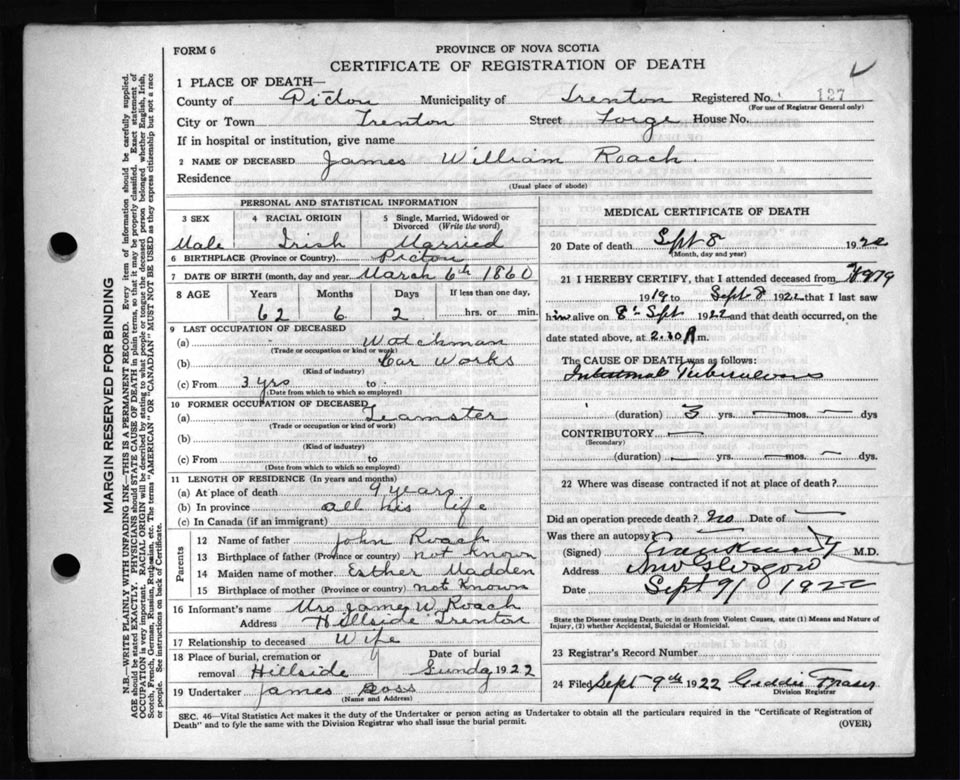 FORM 6
PROVINCE OF NOVA SCOTIA
CERTIFICATE OF REGISTRATION OF DEATH
1 PLACE OF DEATH—
County of Pictou Municipality of Trenton Registered No. 127
(For use of Registrar General only)
City or Town Trenton Street Forge House No.
If in hospital or institution, give name
2 NAME OF DECEASED James William Roach.
Residence
(Usual place of abode)
PERSONAL AND STATISTICAL INFORMATION
3 SEX
Male
4 RACIAL ORIGIN
Irish
5 Single, Married, Widowed or Divorced (Write the word)
Married
6 BIRTHPLACE (Province or Country) Pictou
7 DATE OF BIRTH (month, day and year) March 6th 1860
8 AGE Years Months Days If less than one day,
62 6 2 hrs. or min.
9 LAST OCCUPATION OF DECEASED
(a) Watchman
(Trade or occupation or kind of work)
(b) Car Works
(Kind of industry)
(c) From 3 yrs to
(Date from which to which so employed)
10 FORMER OCCUPATION OF DECEASED
(a) Teamster
(Trade or occupation or kind of work)
(b)
(Kind of industry)
(c) From to
(Date from which to which so employed)
11 LENGTH OF RESIDENCE (In years and months)
(a) At place of death 9 years
(b) In province all his life
(c) In Canada (if an immigrant)
Parents
12 Name of father John Roach
13 Birthplace of father (Province or country) not known
14 Maiden name of mother Esther Madden
15 Birthplace of mother (Province or country) not Known
16 Informant's name Mrs James W. Roach
Address Hillside Trenton
17 Relationship to deceased Wife
18 Place of burial, cremation or Date of burial
removal Hillside Sundy 1922
19 Undertaker James Ross
(Name and Address)
MEDICAL CERTIFICATE OF DEATH
20 Date of death Sept 8 1922
(Month, day and year)
21 I HEREBY CERTIFY, that I attended deceased from
1919 to Sept 8 1922 that I last saw
him alive on 8th Sept 1922 and that death occurred, on the
date stated above, at 2.20 A m.
The CAUSE OF DEATH was as follows:
Intestinal Tuberculosis
(duration) 3 yrs. — mos. — dys
CONTRIBUTORY —
(Secondary)
(duration) — yrs. — mos. — dys.
22 Where was disease contracted if not at place of death?
Did an operation precede death? no Date of —
Was there an autopsy?
(Signed) M.D.
Address New Glasgow
Date Sept 9/ 1922
State the Disease causing Death, or in death from Violent Causes, state (1) Means and Nature of
Injury, (2) whether Accidental, Suicidal or Homicidal.
23 Registrar's Record Number
24 Filed Sept 9th 1922 Geddie Fraser
Division Registrar
SEC. 46—Vital Statistics Act makes it the duty of the Undertaker or person acting as Undertaker to obtain all the particulars required in the "Certificate of Registration of
Death" and to fyle the same with the Division Registrar who shall issue the burial permit.
(OVER)
MARGIN RESERVED FOR BINDING
N.B.—WRITE PLAINLY WITH UNFADING INK—THIS IS A PERMANENT RECORD. Every item of information should be carefully supplied.
AGE should be stated EXACTLY. PHYSICIANS should STATE CAUSE OF DEATH in plain terms, so that it may be properly classified. Exact statement of
OCCUPATION is very important. RACIAL ORIGIN will be described by stating to what people or tongue the deceased person belonged whether English, Irish,
Scotch, French, German, Russian, Ruthenian, etc. The terms "AMERICAN" OR "CANADIAN" MUST NOT BE USED as they express citizenship but not a race
or people. See instructions on back of Certificate.